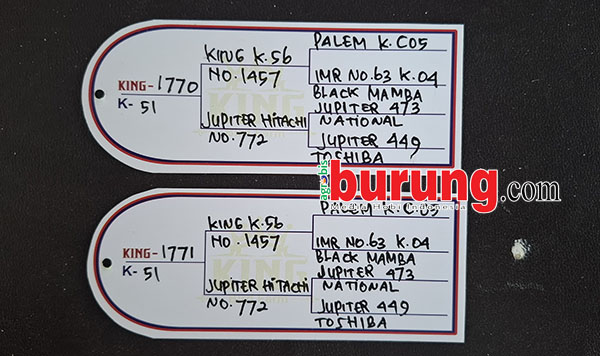 KING-1770
K-51
KING K.56
NO.1457
JUPITER HITACHI
NO.772
PALEM K.C05
IMR NO.63 K.04
BLACK MAMBA
JUPITER 473
NATIONAL
JUPITER 449
TOSHIBA
agrobis
burung.com
Media Hobi Indonesia
KING-1771
K-51
KING K.56
NO.1457
JUPITER HITACHI
NO.772
PALEM K.C05
IMR NO.63 K.04
BLACK MAMBA
JUPITER 473
NATIONAL
JUPITER 449
TOSHIBA
KING
KING